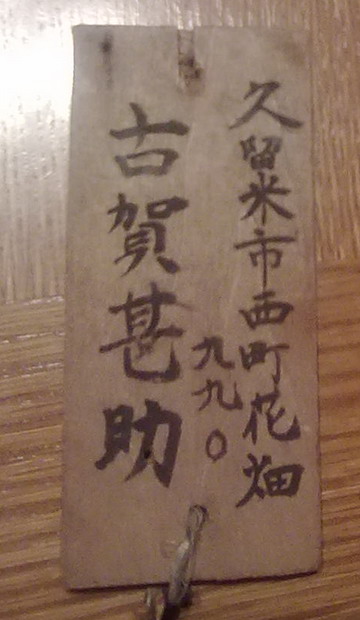 久留米市西町花畑
九九〇
古賀甚助